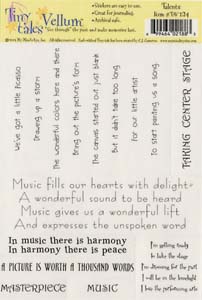 Tiny tales
Vellum
"See through" the past and make memories last.
• Stickers are easy to use.
• Great for journaling.
• Archival safe.
Talents
Item #TV 124
We've got a little Picasso
Drawing up a storm
The wonderful colors here and there
Bring out the picture's form
The canvas started out just blank
But it didn't take too long
For our little artist
To start painting us a song.
TAKING CENTER STAGE
Music fills our hearts with delight
A wonderful sound to be heard
Music gives us a wonderful lift
And expresses the unspoken word
In music there is harmony
In harmony there is peace
A PICTURE IS WORTH A THOUSAND WORDS
MASTERPIECE
MUSIC
I'm getting ready
to take the stage
I'm dressing for the part
I will be in the limelight